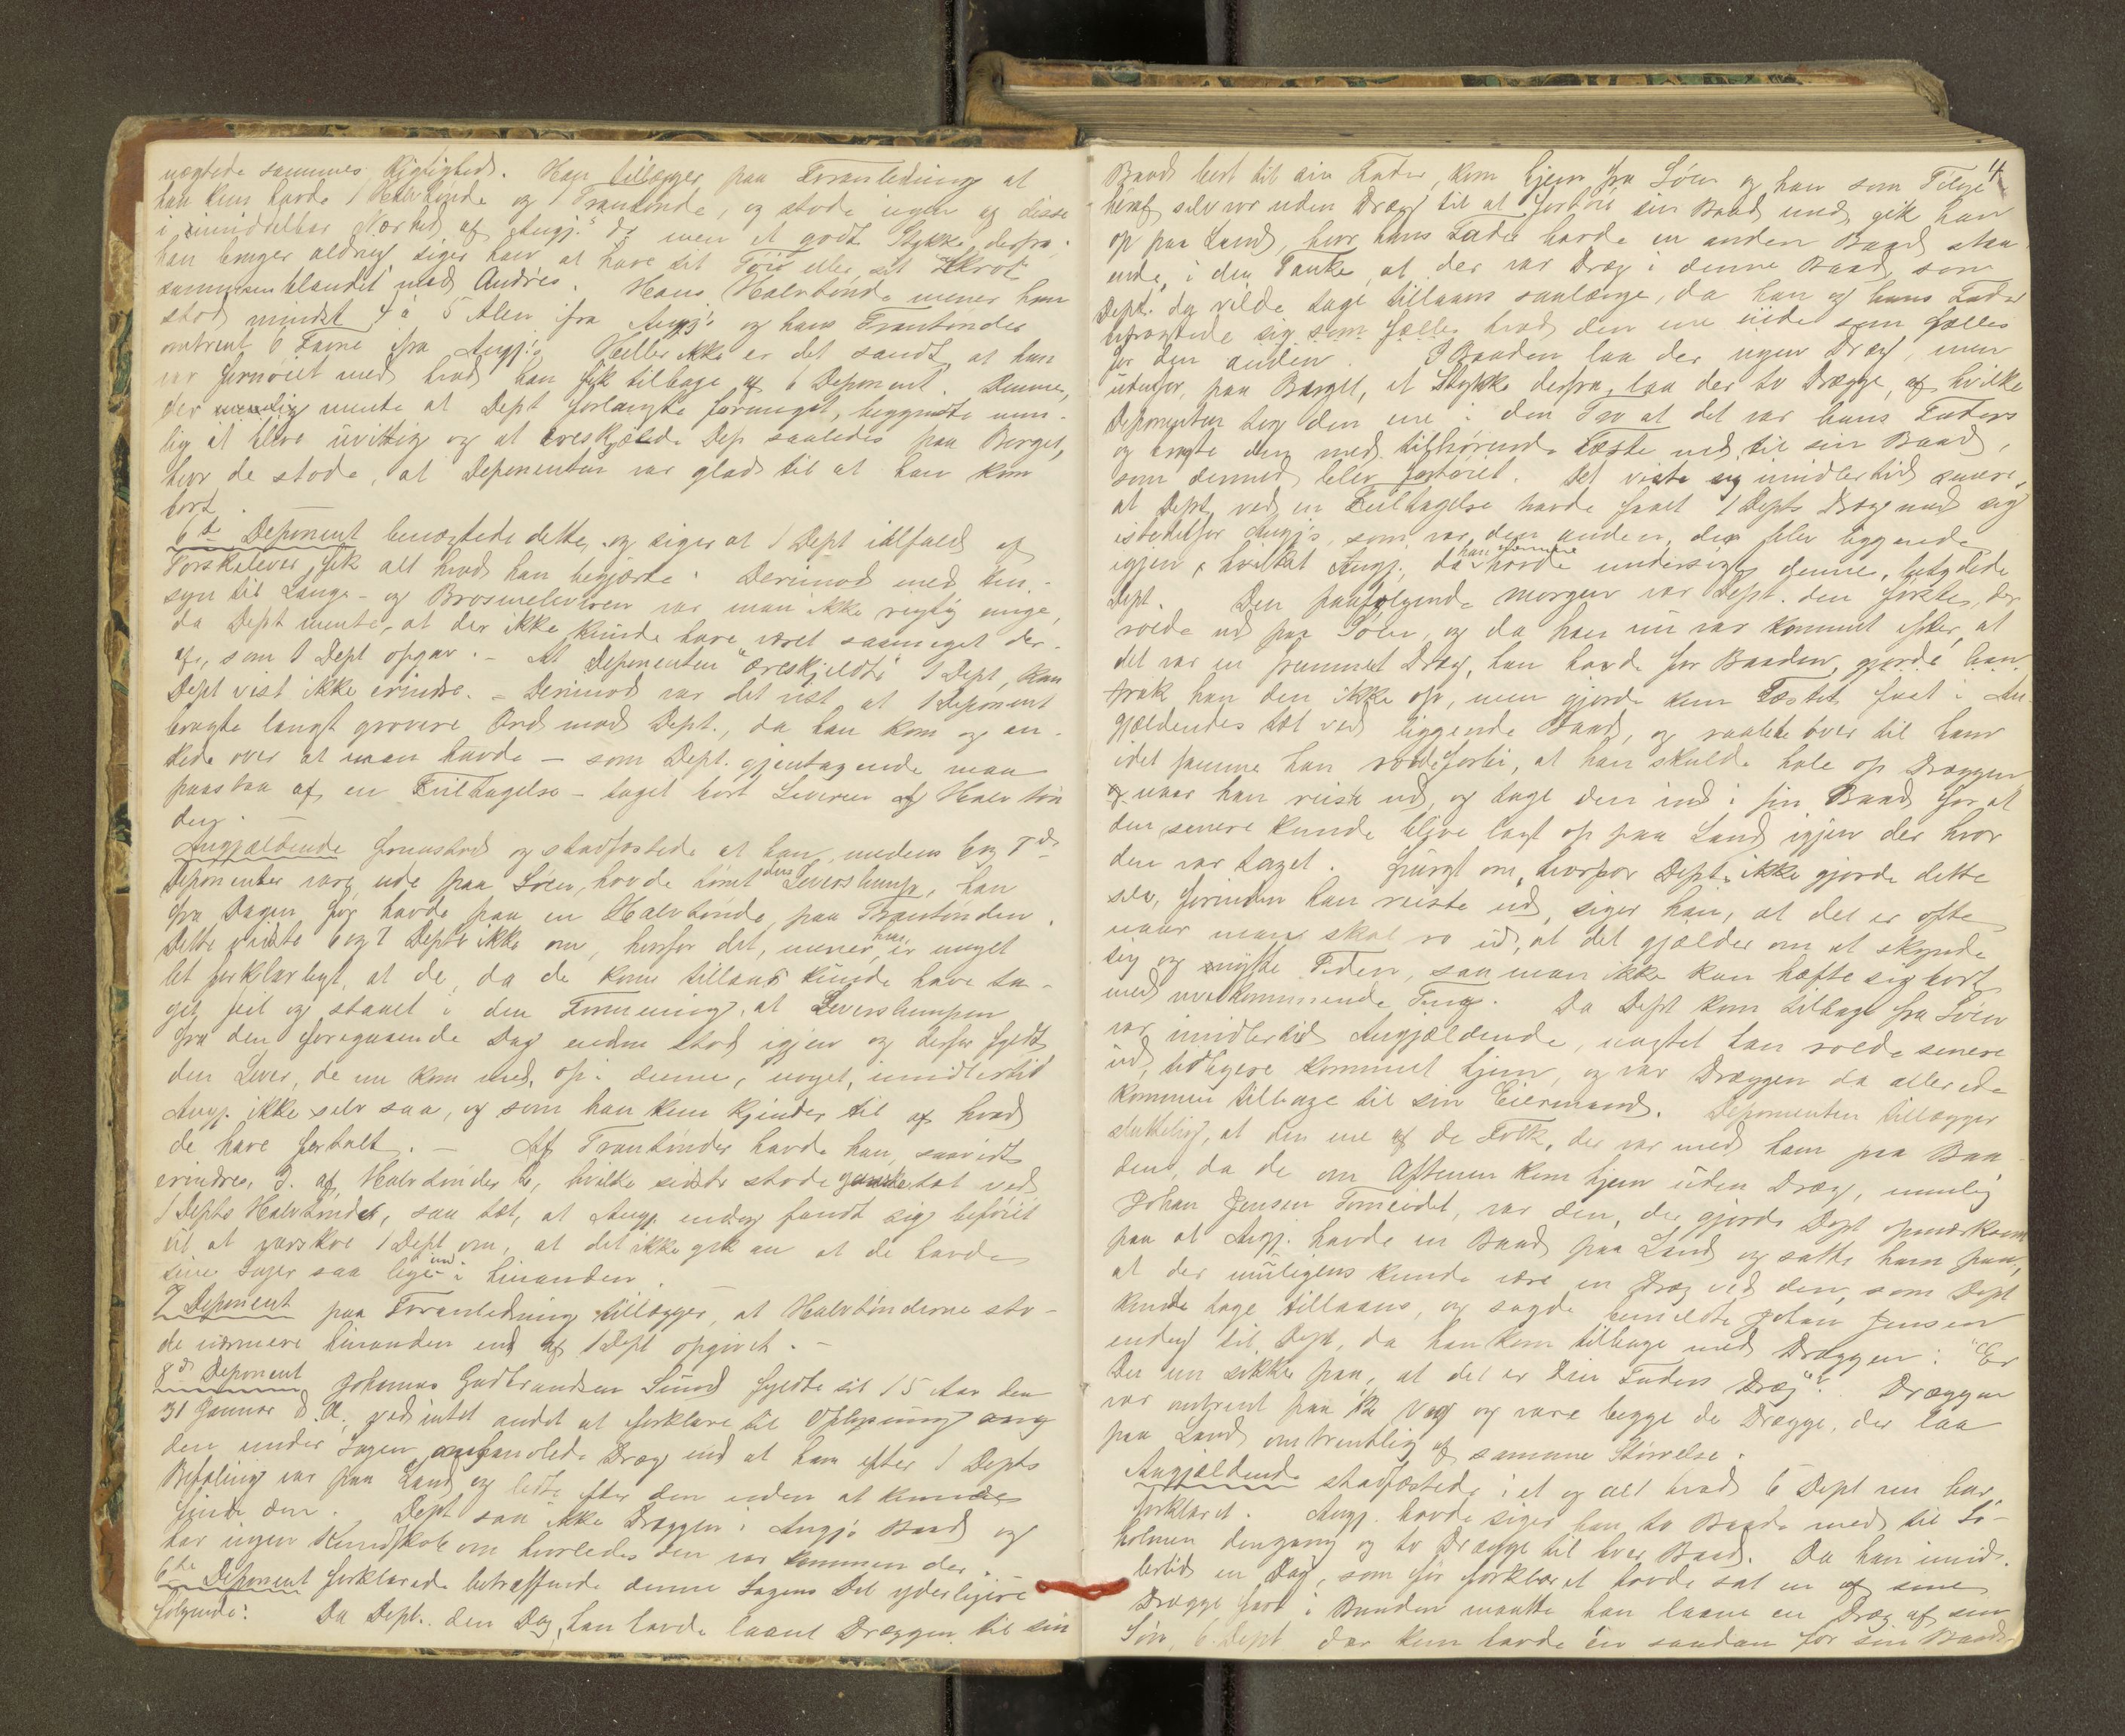 nægtede sammes Rigtighed. Han tillægger paa Foranledning at
han kun havde 1 Halvtønde og 1 Trantønde, og stode ingen af disse
i umiddelbar Nærhed af Angj.s do men et godt Stykke derfra;
han bruger aldrig siger han at have sit Tøi eller sit Skrot
sammenblandet med Andres. Hans Halvtønde mener han
stod mindst 4 à 5 Alen fra Angj's og hans Trantønder
omtrent 6 Favne fra Angj's. Heller ikke er det sandt at han
var fornøiet med hvad han fik tilbage af 6 Deponent. Denne,
der mente at Dept forlangte formeget, begyndte nem-
lig at blive uvittig og at æreskjælde Dep saaledes paa Berget,
hvor de stode, at Deponenten var glad til at han kom
bort.
6te Deponent benægtede dette, og siger at 1 Dept ialfald af
Torskelever fik alt hvad han begjærte. Derimod med Hen-
syn til Lange- og Brosmeleveren var man ikke rigtig enige,
da Dept mente, at der ikke kunde have været saameget der-
af, som 1 Dept opgav. - At Deponenten "æreskjeldte" 1 Dept, kan
Dept vist ikke erindre. - Derimod var det vist at 1 Deponent
brugte langt grovere Ord mod Dept., da han kom og an-
kede over at man havde - som Dept. gjentagende maa
paastaa af en Feiltagelse - taget bort Leveren af Halvtøn
den.
Angjældende fremstod og stadfæstede at han, medens 6 og 7de
Deponenter vare ude paa Søen, havde tømt deres Leverslump, han
fra Dagen før havde paa en Halvtønde, paa Trantønden.
Dette vidste 6 og 7 Depter ikke om, hvorfor det, mener han, er meget
let forklarligt, at de, da de kom tillands kunde have ta-
get feil og staaet i den Formening, at Leverslumpen
fra den foregaaende Dag endnu stod igjen og derfor fyldt
den Lever, de nu kom med, op i denne, noget, imidlertid
Angj. ikke selv saa, og som han kun kjender til af hvad
de have fortalt. - Af Trantønder havde han, saavidt
erindres, 3. af Halvtønder 2, hvilke sidste stode ganske tæt ved
1 Depts Halvtønder, saa tæt, at Angj. endog fandt sig beføiet
til at varskoe 1 Dept om, at det ikke gik an at de havde
sine Sager saa lige ind i hinanden.
7 Deponent paa Foranledning tillægger, at Halvtønderne sto-
de nærmere hinanden end af 1 Dept opgivet. -
8de Deponent Johannes Gudbrandsen Sund fyldte sit 15 Aar den
31 Januar d. A., ved intet andet at forklare til Oplysning ang
den under Sagen omhandlede Dræg end at han efter 1 Depts
Befaling var paa Land og ledte efter den uden at kunde
finde den. Dept saa ikke Dræggen i Angj's Baad og
har ingen Kundskab om hvorledes den var kommen der.
6te Deponent forklarede betræffende denne Sagens Del yderligere
følgende: Da Dept. den Dag, han havde laant Dræggen til sin
4
Baad bort til sin Fader, kom hjem fra Søen og han som Følge
heraf selv var uden Dræg til at fortøie sin Baad med, gik han
op paa Land, hvor hans Fader havde en anden Baad staa-
ende, i den Tanke, at der var Dræg i denne Baad, som
Dept. da vilde tage tillaans saalænge, da han og hans Fader
betragtede sig som fælles hvad den ene eiede som fælles
for den anden. I Baaden laa der ingen Dræg, men
udenfor, paa Berget, et Stykke derfra, laa der to Drægge, af hvilke
Deponenten tog den ene i den Tro at det var hans Faders
og bragte den med tilhørende Fæste ned til sin Baad,
som dermed blev fortøiet. Det viste sig imidlertid senere,
at Dept. ved en Feiltagelse havde faaet 1 Depts Dræg med sig
istedetfor Angj's, som var den anden, der blev liggende
igjen, hvilket Angj., da han havde undersøgt denne, betydede
Dept. Den paafølgende Morgen var Dept. den første, der
roede ud paa Søen, og da han nu var kommet efter, at
det var en fremmed Dræg, han havde for Baaden, gjorde han
trak han den ikke op, men gjorde kun Fæstet fast i An-
gjældendes tæt ved liggende Baad, og raabte over til ham
idet samme han roede forbi, at han skulde hale op Dræggen
naar han reiste ud, og tage den ind i sin Baad for at
den senere kunde blive lagt op paa Land igjen der hvor
den var taget. Spurgt om, hvorfor Dept. ikke gjorde dette
selv, forinden han reiste ud, siger han, at det er ofte
naar man skal ro ud, at det gjælder om at skynde
sig og nytte Tiden, saa man ikke kan hæfte sig bort
med uvedkommende Ting. Da Dept kom tilbage fra Søen
var imidlertid Angjældende, uagtet han roede senere
ud, tidligere kommet hjem, og var Dræggen da allerede
kommen tilbage til sin Eiermand. Deponenten tillægger
sluttelig, at den ene af de Folk, der var med ham paa Baa-
den, da de om Aftenen kom hjem uden Dræg, nemlig
Johan Jensen Torneidet, var den, der gjorde Dept opmærksom
paa at Angj. havde en Baad paa Land og satte ham paa,
at der muligens kunde være en Dræg ved den, som Dept
kunde tage tillaans, og sagde bemeldte Johan Jensen
endog til Dept, da han kom tilbage med Dræggen: "Er
Du nu sikker paa, at det er Din Faders Dræg"? Dræggen
var omtrent paa 1/2 Vog og vare begge de Drægge, der laa
paa Land omtrentlig af samme Størrelse.
Angjældende stadfæstede i et og alt hvad 6 Dept nu har
forklaret. Angj. havde siger han to Baade med til Sø-
holmen dengang og to Drægge til hver Baad. Da han imid-
lertid en Dag, som før forklaret havde sat en af sine
Drægge fast i Bunden maatte han laane en Dræg af sin
Søn, 6. Dept der kun havde én saadan for sin Baad